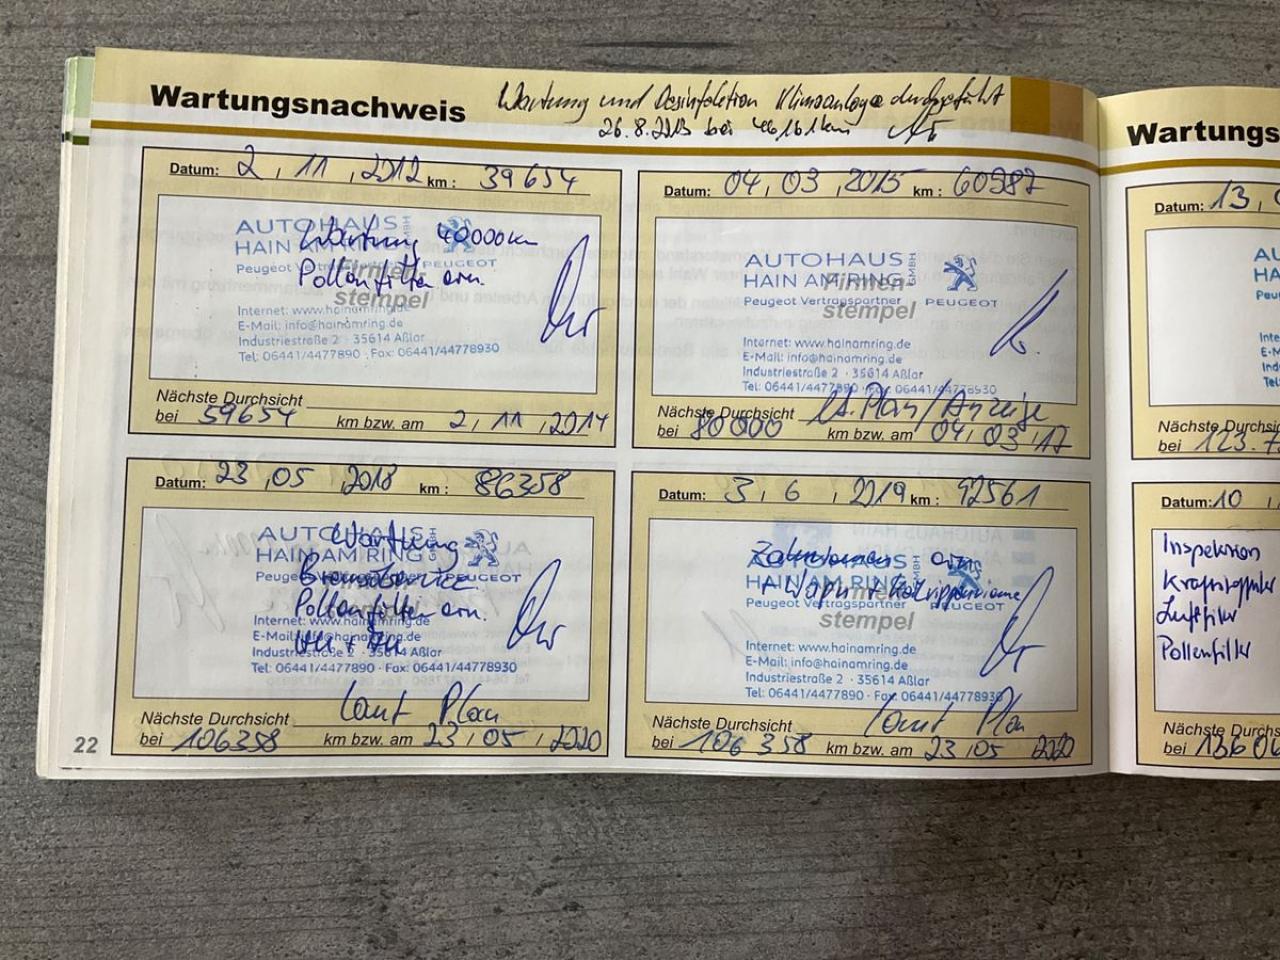 Wartungsnachweis
Wartung und Desinfektion Klimaanlage durchgeführt
26.8.2013 bei 46161km
Datum: 2, 11, 2012 km: 39654
AUTOHAUS GMBH
HAIN AM RING
Peugeot PEUGEOT
Wartung 40000km
Pollenfilter ern.
Firmen-
stempel
Internet: www.hainamring.de
E-Mail: info@hainamring.de
Industriestraße 2 · 35614 Aßlar
Tel: 06441/4477890 · Fax: 06441/44778930
Nächste Durchsicht
bei 59654 km bzw. am 2, 11, 2014
Datum: 04, 03, 2015 km: 60987
AUTOHAUS GMBH
HAIN AM RING
Peugeot Vertragspartner PEUGEOT
Firmen-
stempel
Internet: www.hainamring.de
E-Mail: info@hainamring.de
Industriestraße 2 · 35614 Aßlar
Tel: 06441/4477890 · Fax: 06441/44778930
Nächste Durchsicht lt. Plan/Anzeige
bei 80000 km bzw. am 04, 03, 17
Datum: 23, 05, 2018 km: 86358
AUTOHAUS GMBH
HAIN AM RING
PEUGEOT
Wartung
Pollenfilter ern.
Internet: www.hainamring.de
E-Mail: info@hainamring.de
Industriestraße 2 · 35614 Aßlar
Tel: 06441/4477890 · Fax: 06441/44778930
Nächste Durchsicht laut Plan
bei 106358 km bzw. am 23, 05, 2020
Datum: 3, 6, 2019 km: 92561
AUTOHAUS GMBH
HAIN AM RING
Peugeot Vertragspartner PEUGEOT
Zahnriemen ern.
stempel
Internet: www.hainamring.de
E-Mail: info@hainamring.de
Industriestraße 2 · 35614 Aßlar
Tel: 06441/4477890 · Fax: 06441/44778930
Nächste Durchsicht laut Plan
bei 106358 km bzw. am 23, 05 2020
22
Wartungs
Datum: 13,
Nächste Durchsic
bei 123.7
Datum: 10,
Inspektion
Luftfilter
Pollenfilter
Nächste Durchs
bei 13606